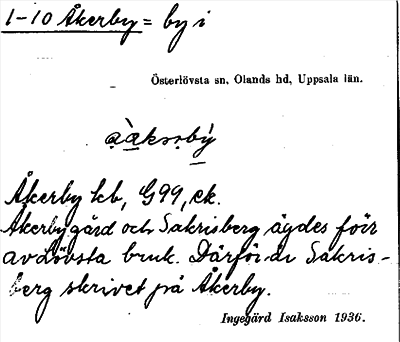 1-10 Åkerby = by i
Österlövsta sn, Olands hd, Uppsala län.
Åkerby hb, G99, ek.
Åkerby gård och Sakrisberg ägdes förr
av Lövsta bruk. Därför är Sakris-
berg skrivet på Åkerby.
Ingegärd Isaksson 1936.